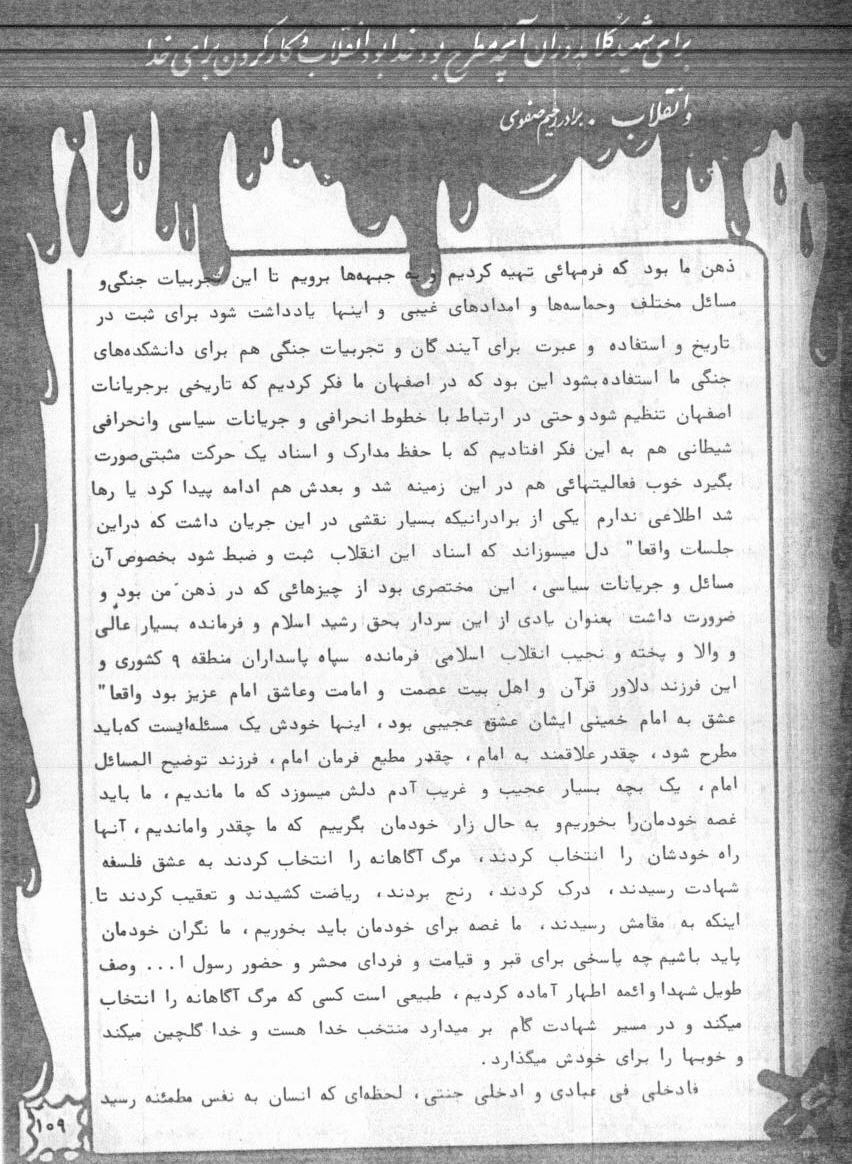 برای شهید کلاهدوزان آنچه مطرح بود خدا بود انقلاب و کار کردن برای خدا
و انقلاب . برادر رحیم صفوی
ذهن ما بود که فرمهائی تهیه کردیم و به جبهه‌ها برویم تا این تجربیات جنگی‌و
مسائل مختلف وحماسه‌ها و امدادهای غیبی و اینها یادداشت شود برای ثبت در
تاریخ و استفاده و عبرت برای آیند گان و تجربیات جنگی هم برای دانشکده‌های
جنگی ما استفاده بشود این بود که در اصفهان ما فکر کردیم که تاریخی برجریانات
اصفهان تنظیم شود و حتی در ارتباط با خطوط انحرافی و جریانات سیاسی وانحرافی
شیطانی هم به این فکر افتادیم که با حفظ مدارک و اسناد یک حرکت مثبتی‌صورت
بگیرد خوب فعالیتهائی هم در این زمینه شد و بعدش هم ادامه پیدا کرد یا رها
شد اطلاعی ندارم یکی از برادرانیکه بسیار نقشی در این جریان داشت که دراین
جلسات واقعا" دل میسوزاند که اسناد این انقلاب ثبت و ضبط شود بخصوص آن
مسائل و جریانات سیاسی، این مختصری بود از چیزهائی که در ذهن من بود و
ضرورت داشت بعنوان یادی از این سردار بحق رشید اسلام و فرمانده بسیار عالی
و والا و پخته و نجیب انقلاب اسلامی فرمانده سپاه پاسداران منطقه ۹ کشوری و
این فرزند دلاور قرآن و اهل بیت عصمت و امامت وعاشق امام عزیز بود واقعا"
عشق به امام خمینی ایشان عشق عجیبی بود، اینها خودش یک مسئله‌ایست که‌باید
مطرح شود، چقدر علاقمند به امام، چقدر مطیع فرمان امام، فرزند توضیح المسائل
امام، یک بچه بسیار عجیب و غریب آدم دلش میسوزد که ما ماندیم، ما باید
غصه خودمان‌را بخوریم‌و به حال زار خودمان بگرییم که ما چقدر واماندیم، آنها
راه خودشان را انتخاب کردند، مرگ آگاهانه را انتخاب کردند به عشق فلسفه
شهادت رسیدند، درک کردند، رنج بردند، ریاضت کشیدند و تعقیب کردند تا
اینکه به مقامش رسیدند، ما غصه برای خودمان باید بخوریم، ما نگران خودمان
باید باشیم چه پاسخی برای قبر و قیامت و فردای محشر و حضور رسول ا... وصف
طویل شهدا وائمه اطهار آماده کردیم، طبیعی است کسی که مرگ آگاهانه را انتخاب
میکند و در مسیر شهادت گام بر میدارد منتخب خدا هست و خدا گلچین میکند
و خوبها را برای خودش میگذارد.
فادخلی فی عبادی و ادخلی جنتی، لحظه‌ای که انسان به نفس مطمئنه رسید
۱۰۹